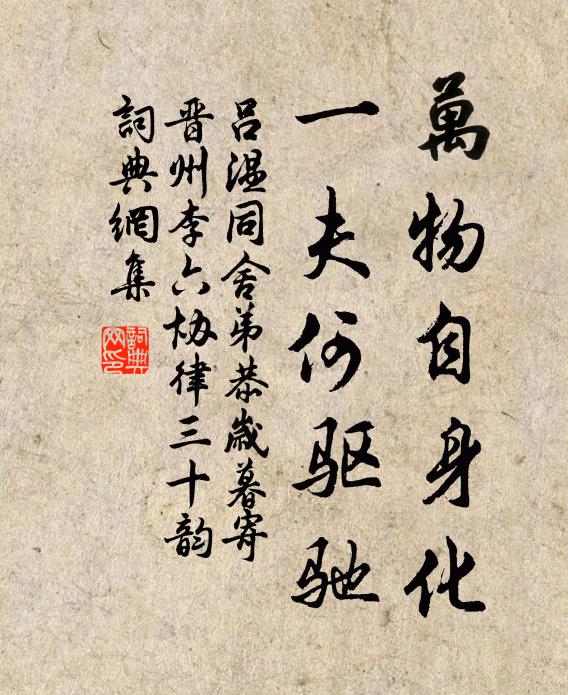 萬物自身化
一夫何驱驰
吕温同舍弟恭歲暮寄
晋州李六协律三十韵
詞典網集
詞典网印